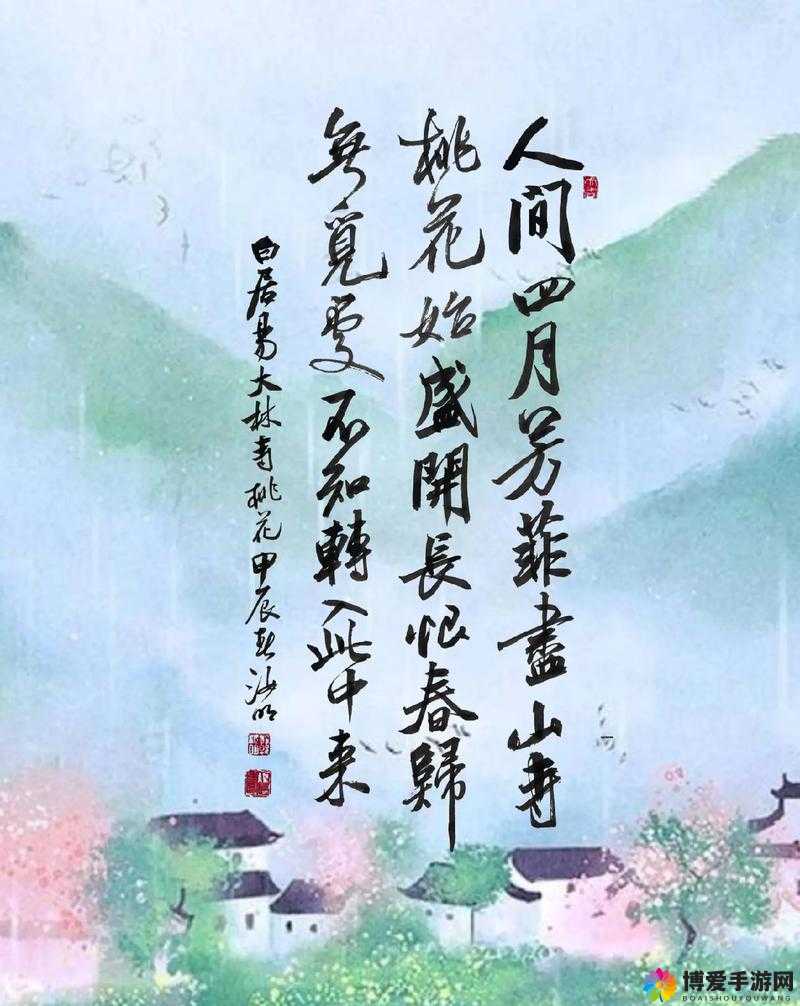 人間四月芳菲盡山寺
桃花始盛開長恨春歸
無覓處不知轉入此中来
白居易大林寺桃花甲辰春海明
博爱手游网
BOAISHOUYOUWANG